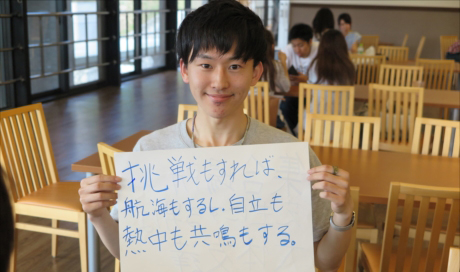 挑戦もすれば、
航海もするし、自立も
熱中も共鳴もする。